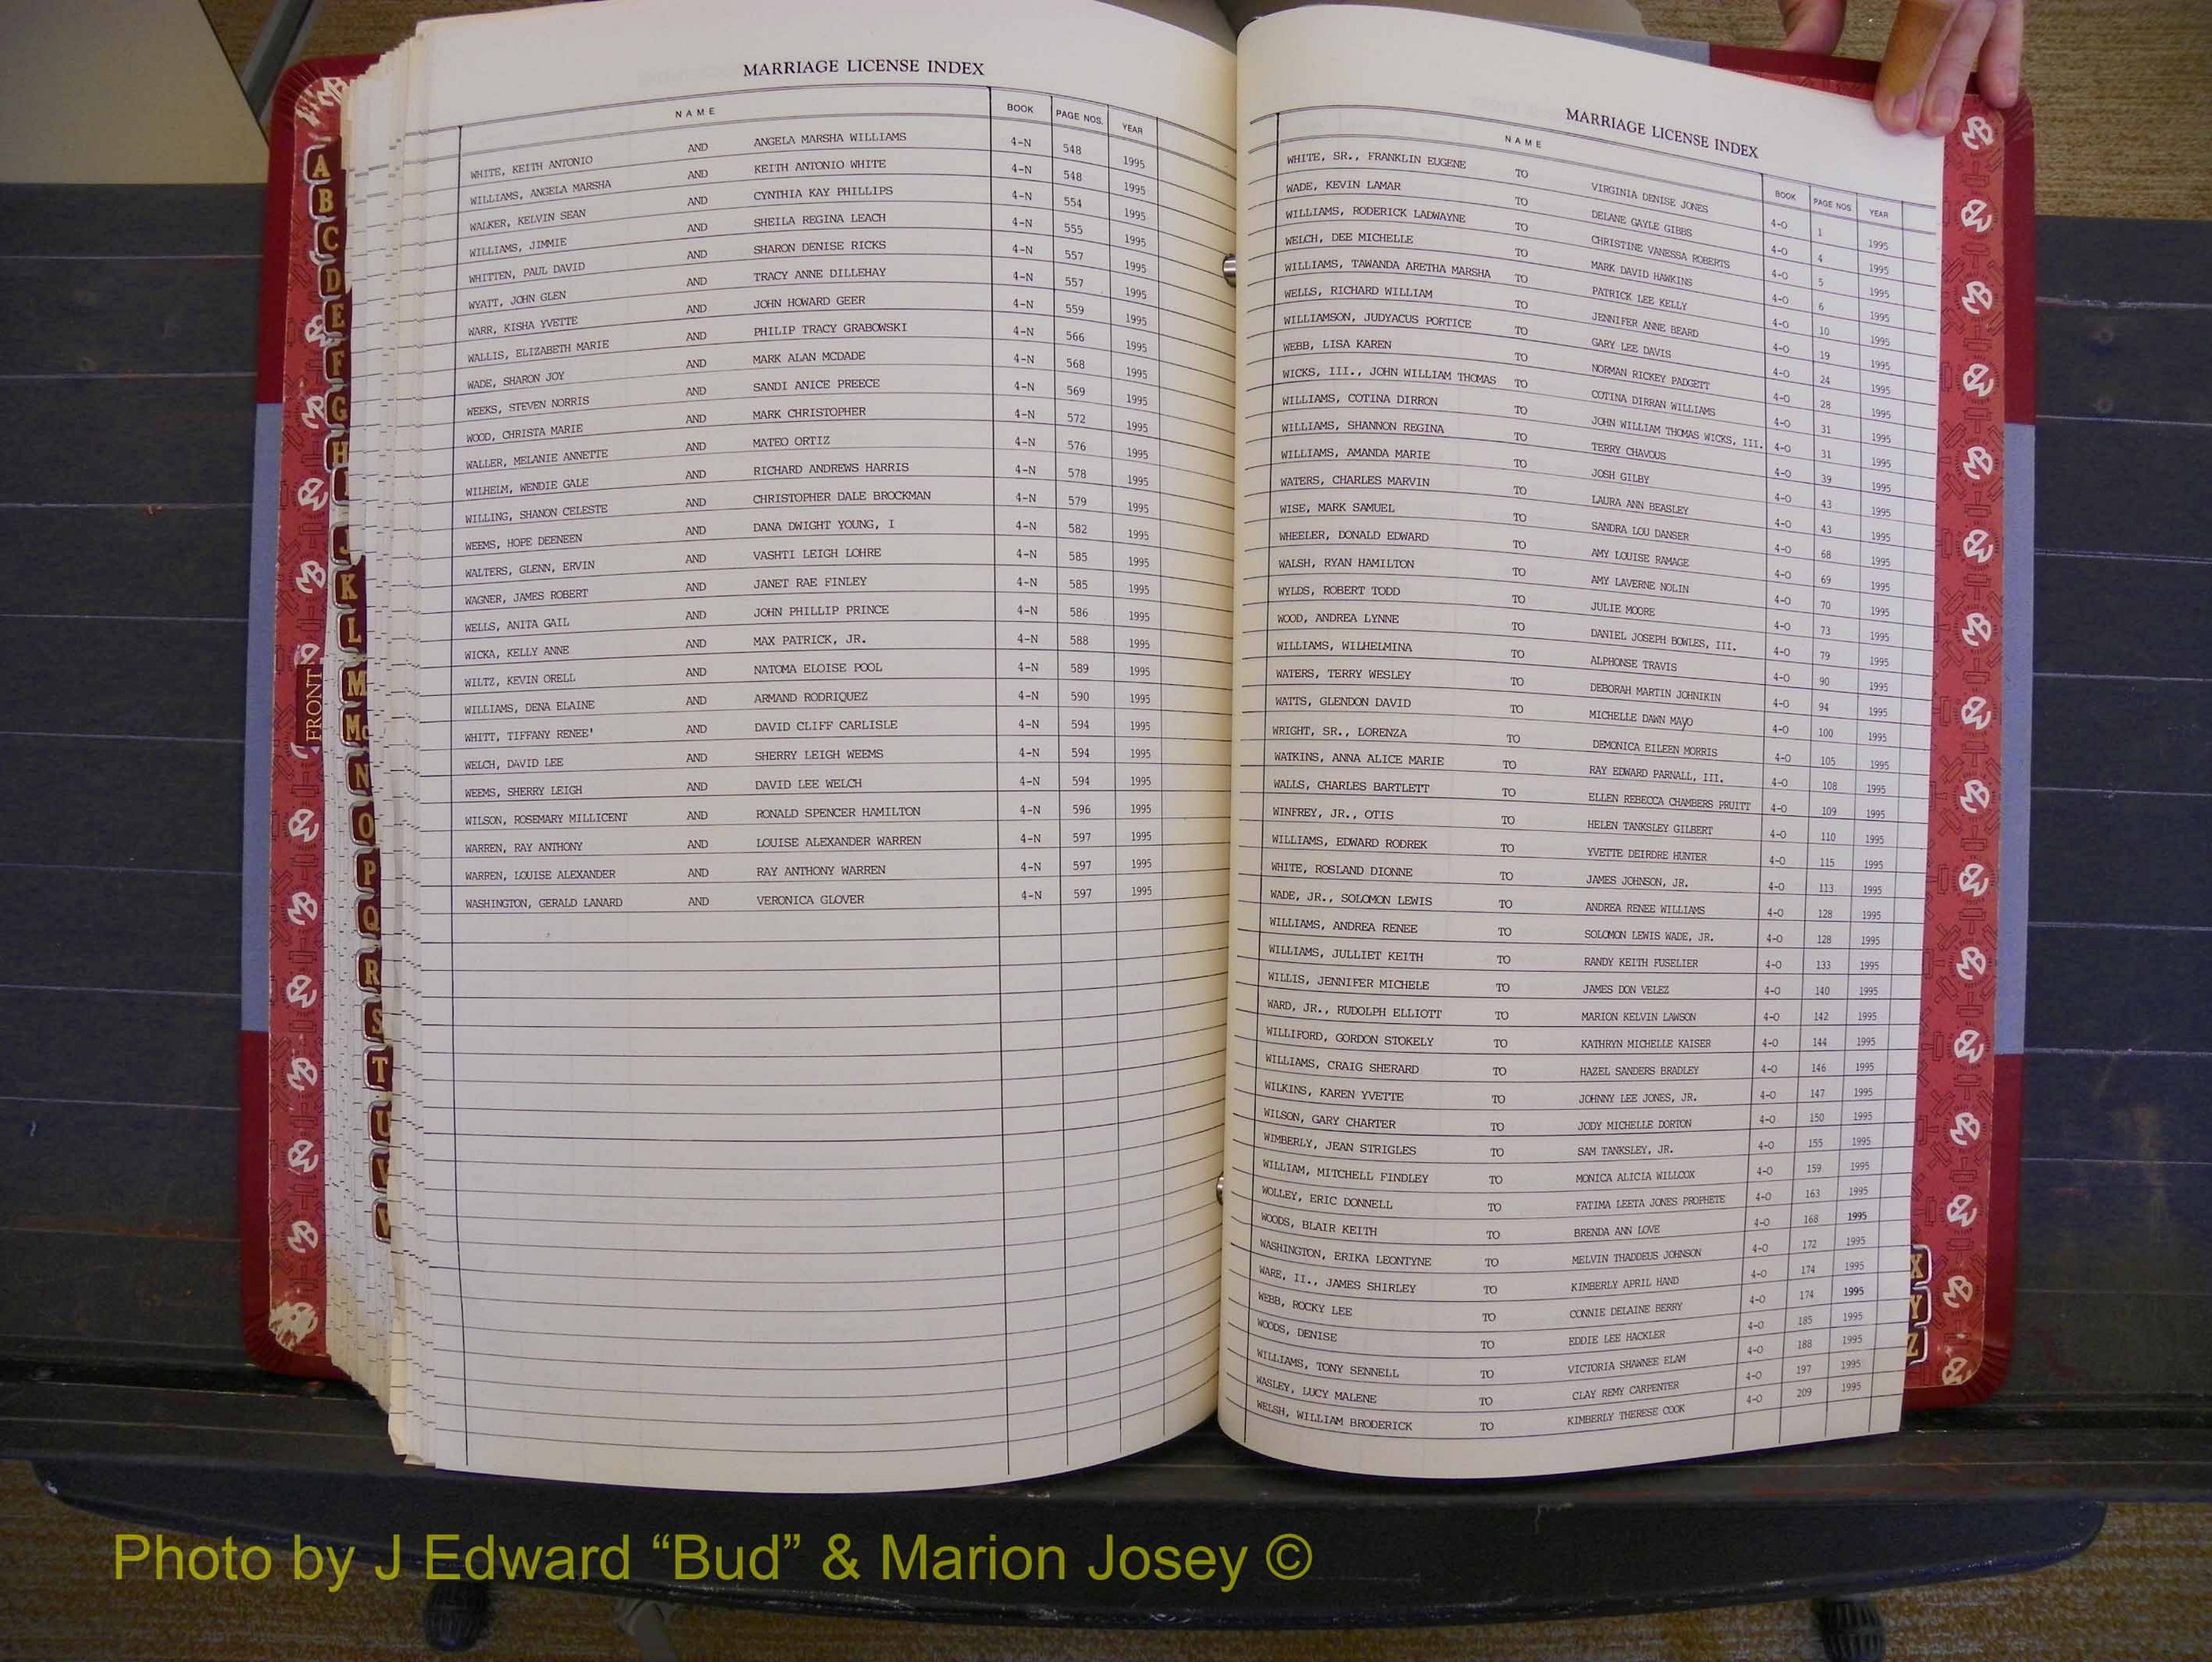 MARRIAGE LICENSE INDEX
NAME BOOK PAGE NOS. YEAR
WHITE, KEITH ANTONIO AND ANGELA MARSHA WILLIAMS 4-N 548 1995
WILLIAMS, ANGELA MARSHA AND KEITH ANTONIO WHITE 4-N 548 1995
WALKER, KELVIN SEAN AND CYNTHIA KAY PHILLIPS 4-N 554 1995
WILLIAMS, JIMMIE AND SHEILA REGINA LEACH 4-N 555 1995
WHITTEN, PAUL DAVID AND SHARON DENISE RICKS 4-N 557 1995
WYATT, JOHN GLEN AND TRACY ANNE DILLEHAY 4-N 557 1995
WARR, KISHA YVETTE AND JOHN HOWARD GEER 4-N 559 1995
WALLIS, ELIZABETH MARIE AND PHILIP TRACY GRABOWSKI 4-N 566 1995
WADE, SHARON JOY AND MARK ALAN MCDADE 4-N 568 1995
WEEKS, STEVEN NORRIS AND SANDI ANICE PREECE 4-N 569 1995
WOOD, CHRISTA MARIE AND MARK CHRISTOPHER 4-N 572 1995
WALLER, MELANIE ANNETTE AND MATEO ORTIZ 4-N 576 1995
WILHELM, WENDIE GALE AND RICHARD ANDREWS HARRIS 4-N 578 1995
WILLING, SHANON CELESTE AND CHRISTOPHER DALE BROCKMAN 4-N 579 1995
WEEMS, HOPE DEENEEN AND DANA DWIGHT YOUNG, I 4-N 582 1995
WALTERS, GLENN, ERVIN AND VASHTI LEIGH LOHRE 4-N 585 1995
WAGNER, JAMES ROBERT AND JANET RAE FINLEY 4-N 585 1995
WELLS, ANITA GAIL AND JOHN PHILLIP PRINCE 4-N 586 1995
WICKA, KELLY ANNE AND MAX PATRICK, JR. 4-N 588 1995
WILTZ, KEVIN ORELL AND NATOMA ELOISE POOL 4-N 589 1995
WILLIAMS, DENA ELAINE AND ARMAND RODRIQUEZ 4-N 590 1995
WHITT, TIFFANY RENEE' AND DAVID CLIFF CARLISLE 4-N 594 1995
WELCH, DAVID LEE AND SHERRY LEIGH WEEMS 4-N 594 1995
WEEMS, SHERRY LEIGH AND DAVID LEE WELCH 4-N 594 1995
WILSON, ROSEMARY MILLICENT AND RONALD SPENCER HAMILTON 4-N 596 1995
WARREN, RAY ANTHONY AND LOUISE ALEXANDER WARREN 4-N 597 1995
WARREN, LOUISE ALEXANDER AND RAY ANTHONY WARREN 4-N 597 1995
WASHINGTON, GERALD LANARD AND VERONICA GLOVER 4-N 597 1995
MARRIAGE LICENSE INDEX
NAME BOOK PAGE NOS YEAR
WHITE, SR., FRANKLIN EUGENE TO VIRGINIA DENISE JONES 4-O 1 1995
WADE, KEVIN LAMAR TO DELANE GAYLE GIBBS 4-O 4 1995
WILLIAMS, RODERICK LADWAYNE TO CHRISTINE VANESSA ROBERTS 4-O 5 1995
WELCH, DEE MICHELLE TO MARK DAVID HAWKINS 4-O 6 1995
WILLIAMS, TAWANDA ARETHA MARSHA TO PATRICK LEE KELLY 4-O 10 1995
WELLS, RICHARD WILLIAM TO JENNIFER ANNE BEARD 4-O 19 1995
WILLIAMSON, JUDYACUS PORTICE TO GARY LEE DAVIS 4-O 24 1995
WEBB, LISA KAREN TO NORMAN RICKEY PADGETT 4-O 28 1995
WICKS, III., JOHN WILLIAM THOMAS TO COTINA DIRRAN WILLIAMS 4-O 31 1995
WILLIAMS, COTINA DIRRON TO JOHN WILLIAM THOMAS WICKS, III. 4-O 31 1995
WILLIAMS, SHANNON REGINA TO TERRY CHAVOUS 4-O 39 1995
WILLIAMS, AMANDA MARIE TO JOSH GILBY 4-O 43 1995
WATERS, CHARLES MARVIN TO LAURA ANN BEASLEY 4-O 43 1995
WISE, MARK SAMUEL TO SANDRA LOU DANSER 4-O 68 1995
WHEELER, DONALD EDWARD TO AMY LOUISE RAMAGE 4-O 69 1995
WALSH, RYAN HAMILTON TO AMY LAVERNE NOLIN 4-O 70 1995
WYLDS, ROBERT TODD TO JULIE MOORE 4-O 73 1995
WOOD, ANDREA LYNNE TO DANIEL JOSEPH BOWLES, III. 4-O 79 1995
WILLIAMS, WILHELMINA TO ALPHONSE TRAVIS 4-O 90 1995
WATERS, TERRY WESLEY TO DEBORAH MARTIN JOHNIKIN 4-O 94 1995
WATTS, GLENDON DAVID TO MICHELLE DAWN MAYO 4-O 100 1995
WRIGHT, SR., LORENZA TO DEMONICA EILEEN MORRIS 4-O 105 1995
WATKINS, ANNA ALICE MARIE TO RAY EDWARD PARNALL, III. 4-O 108 1995
WALLS, CHARLES BARTLETT TO ELLEN REBECCA CHAMBERS PRUITT 4-O 109 1995
WINFREY, JR., OTIS TO HELEN TANKSLEY GILBERT 4-O 110 1995
WILLIAMS, EDWARD RODREK TO YVETTE DEIRDRE HUNTER 4-O 115 1995
WHITE, ROSLAND DIONNE TO JAMES JOHNSON, JR. 4-O 113 1995
WADE, JR., SOLOMON LEWIS TO ANDREA RENEE WILLIAMS 4-O 128 1995
WILLIAMS, ANDREA RENEE TO SOLOMON LEWIS WADE, JR. 4-O 128 1995
WILLIAMS, JULLIET KEITH TO RANDY KEITH FUSELIER 4-O 133 1995
WILLIS, JENNIFER MICHELE TO JAMES DON VELEZ 4-O 140 1995
WARD, JR., RUDOLPH ELLIOTT TO MARION KELVIN LAWSON 4-O 142 1995
WILLIFORD, GORDON STOKELY TO KATHRYN MICHELLE KAISER 4-O 144 1995
WILLIAMS, CRAIG SHERARD TO HAZEL SANDERS BRADLEY 4-O 146 1995
WILKINS, KAREN YVETTE TO JOHNNY LEE JONES, JR. 4-O 147 1995
WILSON, GARY CHARTER TO JODY MICHELLE DORTON 4-O 150 1995
WIMBERLY, JEAN STRIGLES TO SAM TANKSLEY, JR. 4-O 155 1995
WILLIAM, MITCHELL FINDLEY TO MONICA ALICIA WILLCOX 4-O 159 1995
WOLLEY, ERIC DONNELL TO FATIMA LEETA JONES PROPHETE 4-O 163 1995
WOODS, BLAIR KEITH TO BRENDA ANN LOVE 4-O 168 1995
WASHINGTON, ERIKA LEONTYNE TO MELVIN THADDEUS JOHNSON 4-O 172 1995
WARE, II., JAMES SHIRLEY TO KIMBERLY APRIL HAND 4-O 174 1995
WEBB, ROCKY LEE TO CONNIE DELAINE BERRY 4-O 174 1995
WOODS, DENISE TO EDDIE LEE HACKLER 4-O 185 1995
WILLIAMS, TONY SENNELL TO VICTORIA SHAWNEE ELAM 4-O 188 1995
WASLEY, LUCY MALENE TO CLAY REMY CARPENTER 4-O 197 1995
WELSH, WILLIAM BRODERICK TO KIMBERLY THERESE COOK 4-O 209 1995
A
B
C
D
E
F
G
H
I
J
K
L
M
Mc
N
O
P
Q
R
S
T
U
V
W
FRONT
X
Y
Z
Photo by J Edward “Bud” & Marion Josey ©